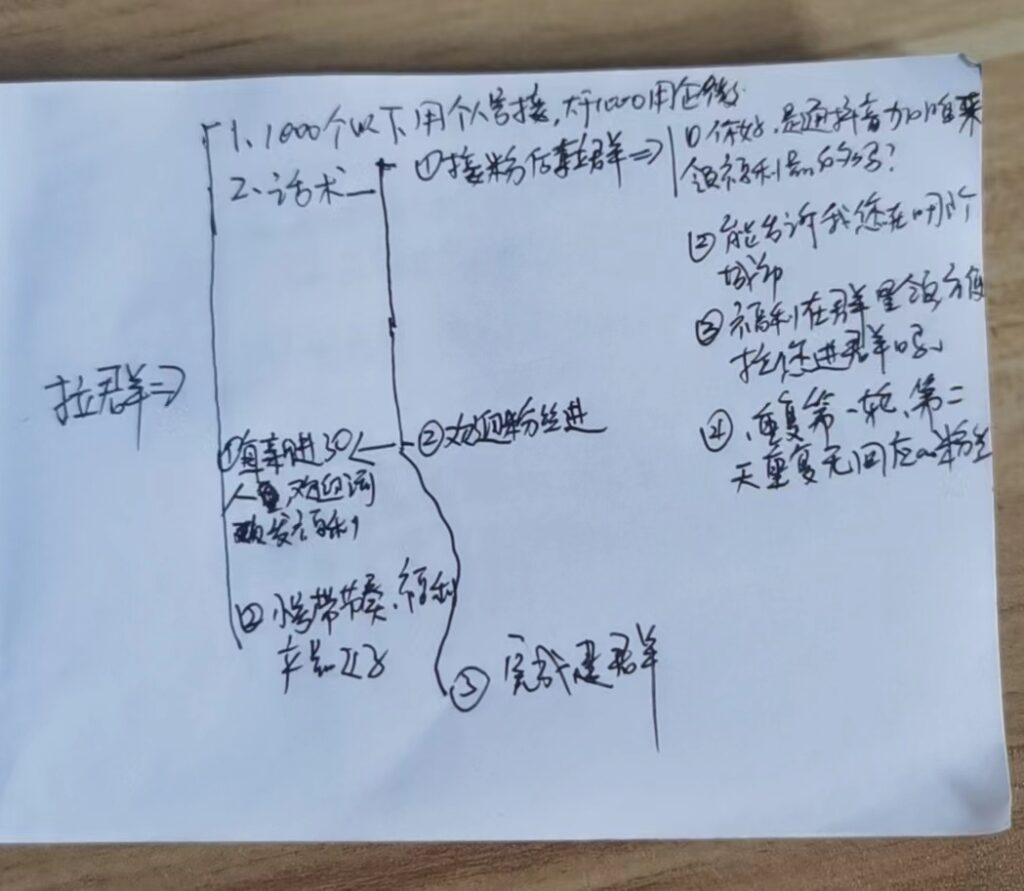 拉群⇒
1、1000个以下用个人号接,大于1000用企微
2、话术
①接粉 拉群⇒
①你好,是通抖音加咱来
领福利品的吗?
②能告许我您在哪个
城市
③福利在群里领方便
拉您进群吗、
④、重复第一轮、第二
天重复无回应的粉丝
②欢迎粉丝进
①每进30
人,欢迎词
发福利
②小号带节奏、福利
③完成建群